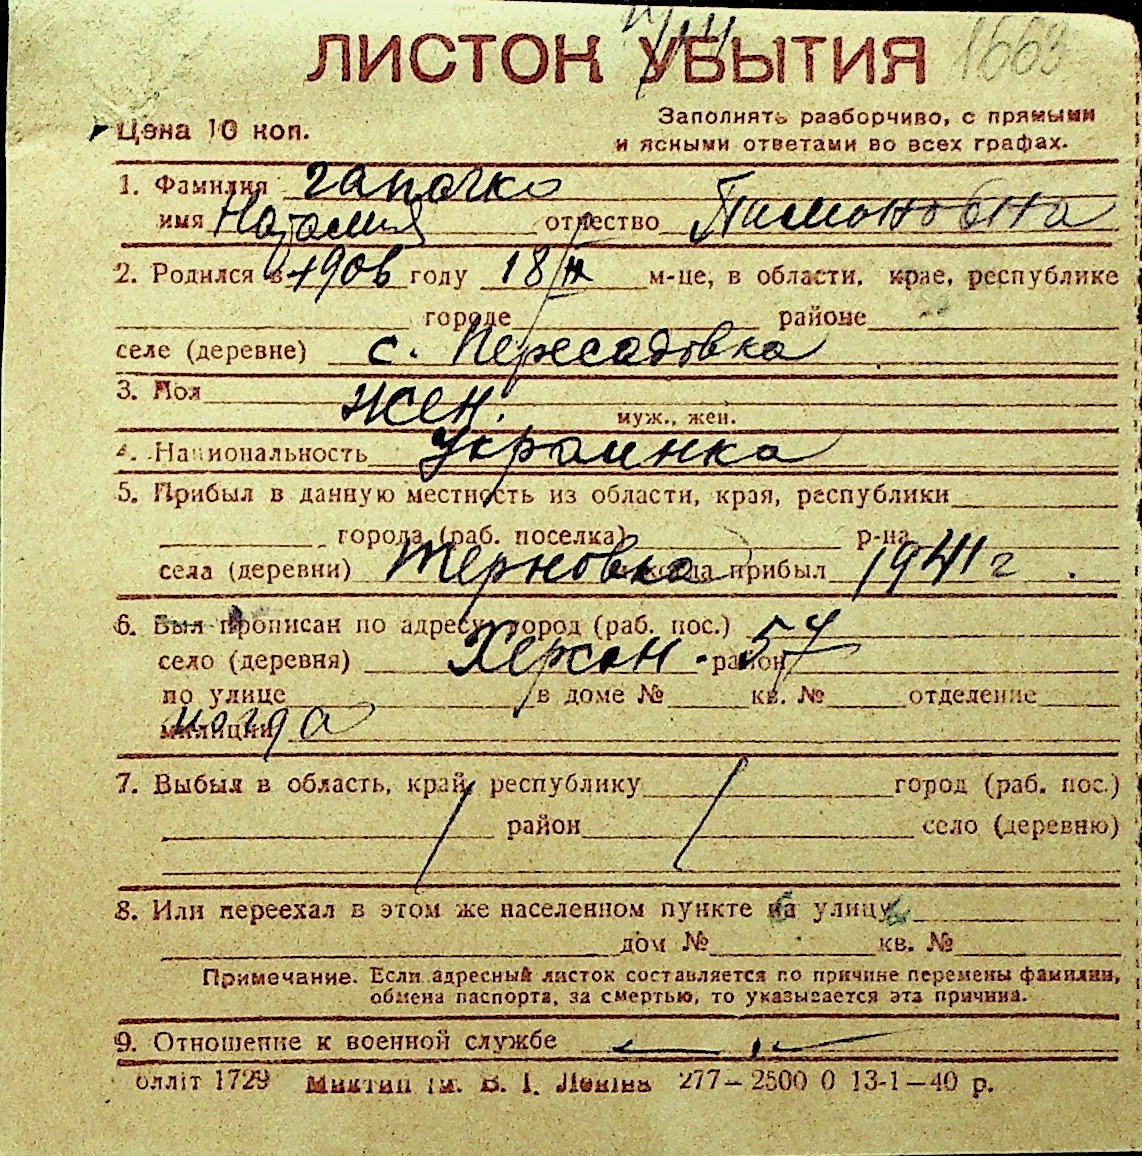 ЛИСТОК УБЫТИЯ 1663
Цена 10 коп.
Заполнять разборчиво, с прямыми
и ясными ответами во всех графах.
1. Фамилия Гапочко
имя Наталия отчество Тимоновна
2. Родился в 1906 году 18/II м-це, в области, крае, республике
городе районе
селе (деревне) с. Пересадовка
3. Пол жен.
муж., жен.
4. Национальность Украинка
5. Прибыл в данную местность из области, края, республики
города (раб. поселка) р-на
села (деревни) Терновка когда прибыл 1941 г.
6. Был прописан по адресу: город (раб. пос.)
село (деревня) Херсон. район 57
по улице в доме № кв. № отделение
милиции
7. Выбыл в область, край, республику город (раб. пос.)
район село (деревню)
8. Или переехал в этом же населенном пункте на улицу
дом № кв. №
Примечание. Если адресный листок составляется по причине перемены фамилии,
обмена паспорта, за смертью, то указывается эта причина.
9. Отношение к военной службе
олліт 1729 Миктип ім. В. І. Леніна 277—2500 0 13-1—40 р.